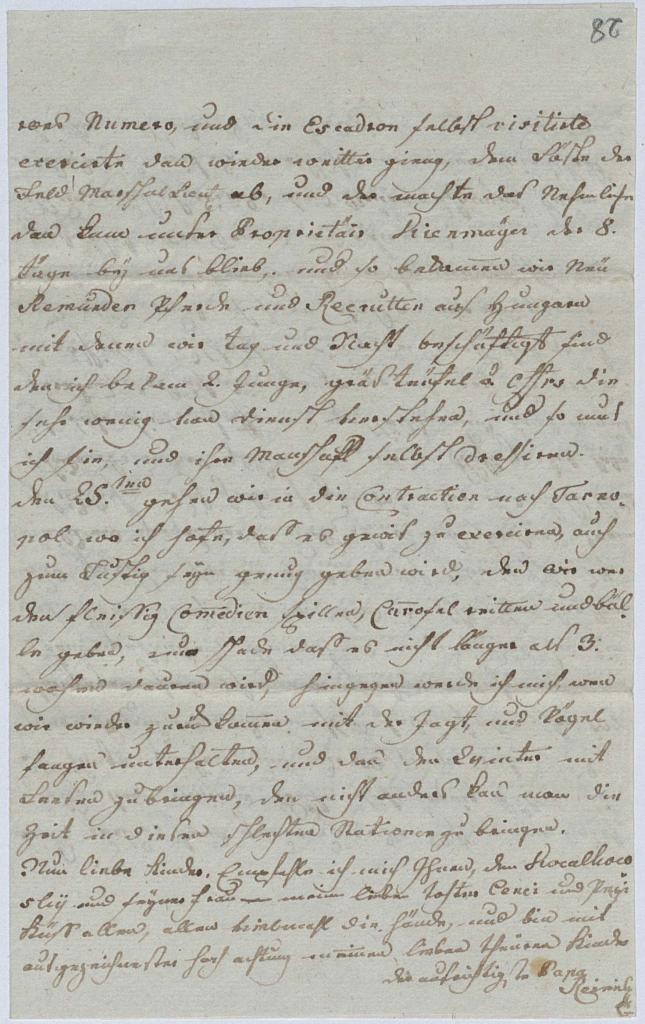 82
Numero, und die Escadron selbst visitirte
exercirte dan wieder weitter gieng, dem folgte der
Feld Marschal Lieut ab, und der machte das Nehmliche
dan kam unser Proprietair Kienmayer der 8.
täge bey uns blieb, und so bekamen wir Neü
Remunden Pferde und Recrutten aus Hungarn
mit denen wir tag und Nacht beschäftigt sind
den ich bekam 2. Junge, die
sehr wenig von dienst verstehen, und so mus
ich sie, und ihre Manschaft selbst dressiren.
den 25. gehen wir in die Contraction nach Tarno-
pol wo ich hofe, dass es gewis zu exerciren, auch
zum Lustig seyn genug geben wird, den wir wer
den fleissig Comedien spillen, Carosel reitten und bäl-
le geben, nur schade dass es nicht länger als 3.
wochen dauren wird, hingegen werde ich mich wen
wir wieder zurük komen mit der Jagt, und Vögel
fangen unterhalten, und dan den Winter mit
zubringen, den nicht anders kan man die
Zeit in diesen schlechten Stationen zu bringen.
Nun liebe Kinder, Empfehle ich mich Ihnen, dem
und seyner frau meine liebe Cenci und Pepi
küss allen, allen vielmahl die hände, und bin mit
ausgezeichnester hoch achtung meinen lieben theuren Kinder
der aufrichtigste Papa